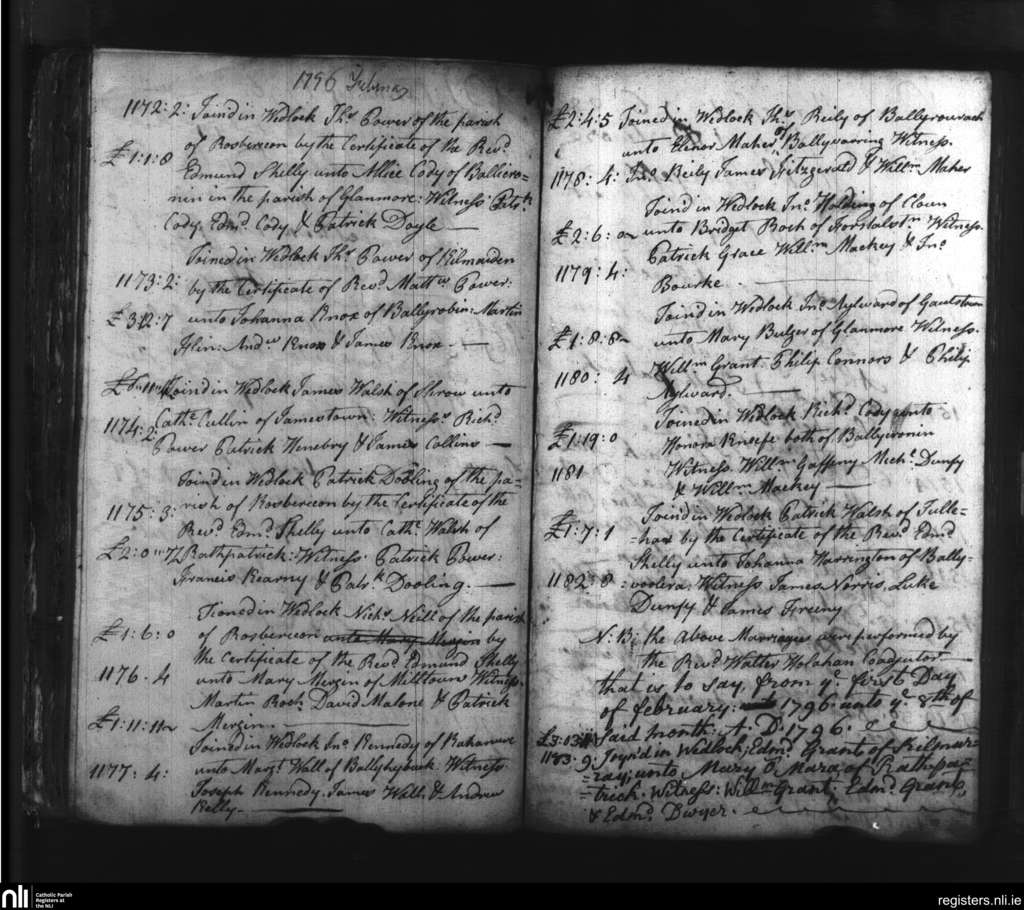 1796 February
1172: 2: Joind in Wedlock Thos. Power of the parish
of Rosbercon by the Certificate of the Revd.
£1:1:8 Edmund Shelly unto Allice Cody of Balliero=
nin in the parish of Glanmore: Witness: Patrk.
Cody, Edmd. Cody & Patrick Doyle —
Joined in Wedlock Thos. Power of Kilmaiden
1173: 2: by the Certificate of Revd. Mattw. Power:
unto Johanna Knox of Ballyrobin: Martin
Hlin: Andw. Knox & James Knox —
Joind in Wedlock James Walsh of Shrow unto
1174: 2 Cathe. Cullin of Jamestown: Witness. Richd.
Power Patrick Henebry & James Collins —
Joind in Wedlock Patrick Dooling of the pa=
1175: 3: rish of Rosbercon by the Certificate of the
Revd. Edmd. Shelly unto Cathe. Walsh of
Rathpatrick: Witness Patrick Power:
Francis Kearny & Patrk. Dooling. —
Jioned in Wedlock Nichs. Neill of the parish
£1:6:0 of Rosbercon unto Mary Mergin by
the Certificate of the Revd. Edmund Shelly
1176. 4 unto Mary Mergin of Milltown Witness.
Martin Roch. David Malone & Patrick
£1:11: Mergin. —
Joined in Wedlock Jno. Kennedy of Rahanure
1177: 4: unto Margt. Wall of Ballyhybuck. Witness
Joseph Kennedy. James Wall, & Andrew
Kelly —
£2:4:5 Joined in Wedlock Thos. Reily of Ballyrowrach
unto Elinor Maher of Ballyvoaring Witness.
1178: 4: Jno. Reily James Fitzgerald & Willm. Maher
Joind in Wedlock Jno. Holding of Cloun
£2:6: unto Bridget Roch of Forstalstn. Witness.
Patrick Grace Willm. Mackey & Jno.
1179: 4: Bourke —
Joind in Wedlock Jno. Aylward of Gaulstown
£1:8:8 unto Mary Bulger of Glanmore Witness.
Willm. Grant. Philip Connors & Philip
1180: 4 Aylward. —
Joined in Wedlock Richd. Cody unto
£1:19:0 Honora Kneefe both of Ballyironin
1181 Witness. Willm. Gaffeny Michl. Dunfy
& Willm. Mackey —
Joind in Wedlock Patrick Walsh of Tulle=
£1:7:1 har by the Certificate of the Revd. Edmd.
Shelly unto Johanna Harrington of Bally-
1182: 8: voolera: Witness James Norris, Luke
Dunfy & James Freeny
N: B: the Above Marriages were performed by
the Revd. Walter Holahan Coadjutor —
that is to say, from ye. first Day
of february: 1796. unto ye. 8th of
said month: A. D. 1796.
£3:03: 
1183. 9. Joyn'd in Wedlock; Edmd. Grant of Kilmur=
=ray; unto Mary O'Mara of Rathpa=
=trick. Witness: Willm. Grant; Edmd. Grant,
& Edmd. Dwyer.
nli Catholic Parish
Registers at
the NLI
registers.nli.ie